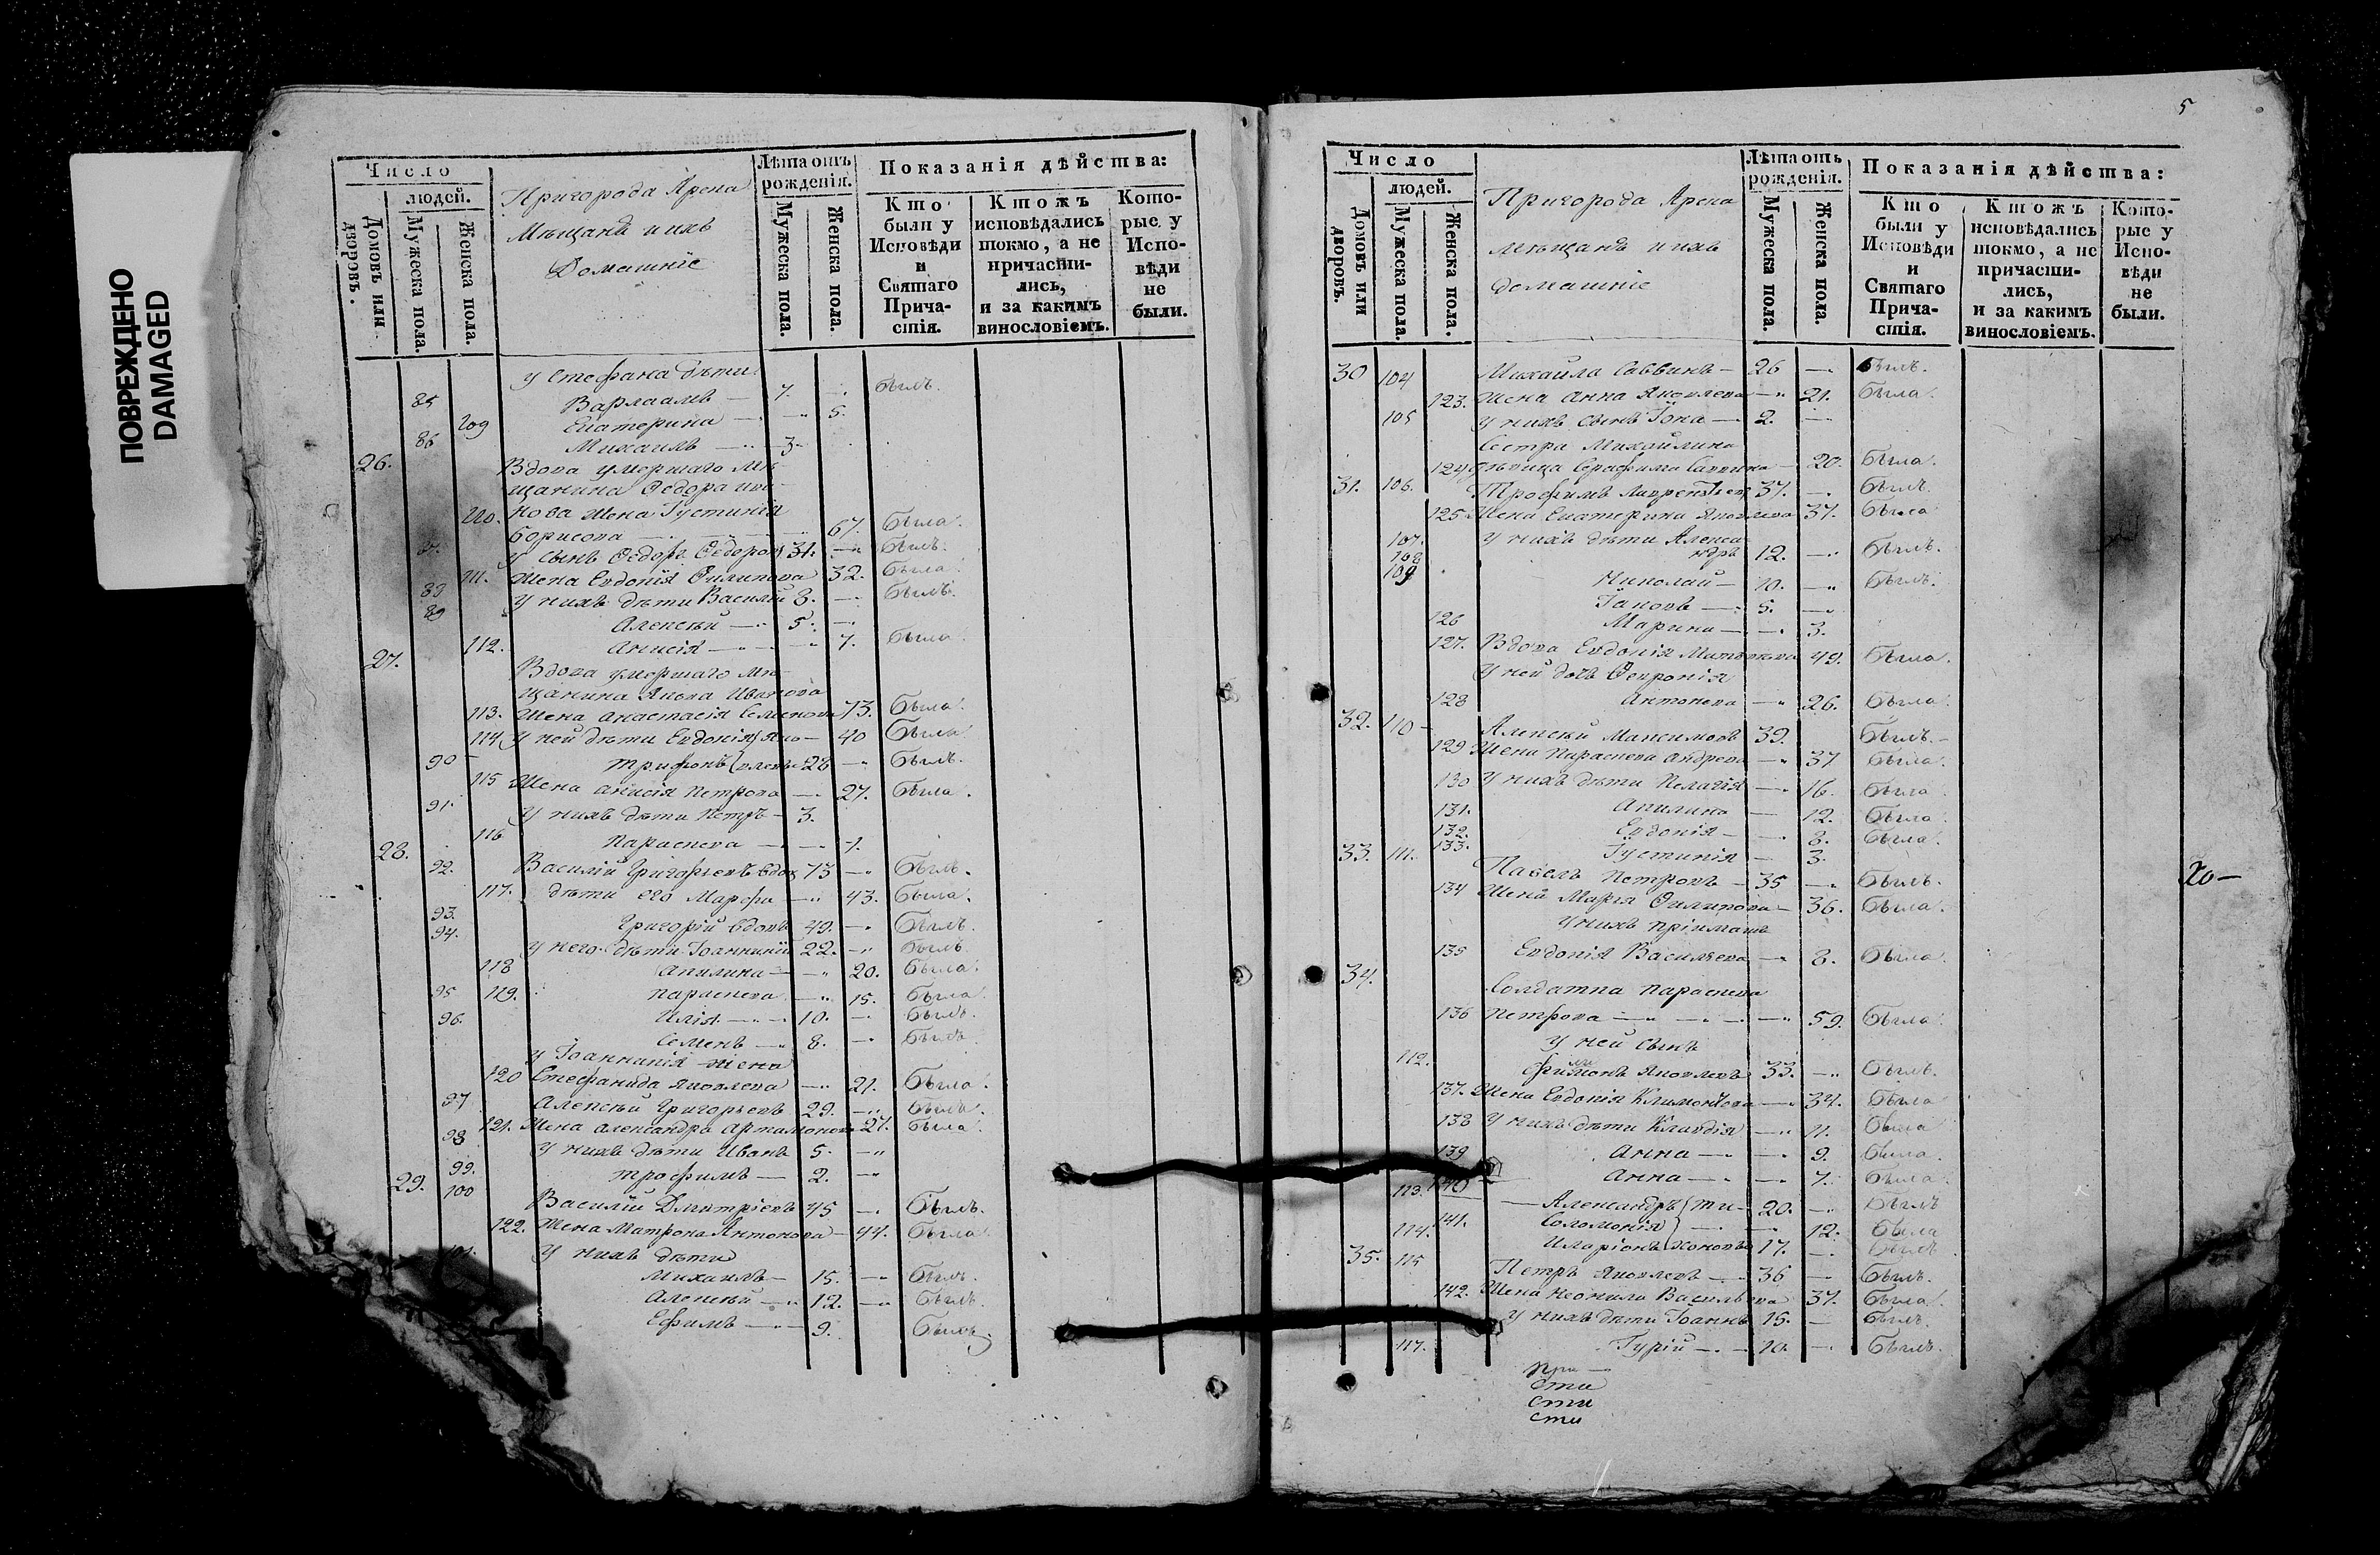 ПОВРЕЖДЕНО
DAMAGED
Число
людей.
Домовъ или дворовъ.
Мужеска пола.
Женска пола.
Пригорода Арска
Мѣщанѣ и ихъ
Домашніе
Лѣта отъ рожденія.
Мужеска пола.
Женска пола.
Показанія дѣйства:
Кто были у Исповѣди и Святаго Причастія.
Ктожъ исповѣдались токмо, а не причастились, и за какимъ винословіемъ.
Которые у Исповѣди не были.
у Стефана дѣти
85 Варлаамъ — 7. — былъ.
109 Екатерина — 5.
86 Михаилъ — 3.
26. Вдова умершаго мѣ-
щанина Ѳедора
110. нова жена Густинія
Борисова — 67. была.
У сынъ Ѳедоръ Ѳедоровъ 31. — былъ.
111. Жена Евдокія Филипова 32. была.
88 У нихъ дѣти Василій 8. — былъ.
89 Алексѣй — 5. —
112. Анисія — 7. была.
27. Вдова умершаго мѣ-
щанина Якова Иванова
113. Жена Анастасія Семенова 73. была.
114 У ней дѣти Евдокія Яко- 40 была
90 Трифонъ влевы 28 — былъ.
115 Жена Анисія Петрова — 27. была.
91. У нихъ дѣти Петръ — 3.
116 Параскева — 1.
28. 92. Василій Григорьевъ вдов 73 — былъ.
117. дѣти его Марфа — 43. была.
93. Григорій вдовъ 49. — былъ.
94. У него дѣти Іоанникій 22. — былъ.
118 Акилина — 20. была.
119. Параскева — 15. была.
95 Илія — 10. — былъ.
96. Семенъ — 8. — былъ.
у Іоанникія жена
120 Стефанида Яковлева — 21. была.
97 Алексѣй Григорьевъ 29. — былъ.
121. Жена Александра Артамонова 27. была.
98 У нихъ дѣти Иванъ 5. —
99. Трофимъ — 2. —
29. 100 Василій Дмитріевъ 45 — былъ.
122. Жена Матрона Антонова — 44. была.
101. У нихъ дѣти
Михаилъ — 15. — былъ.
Алексѣй — 12. — былъ.
Ефимъ — 9. былъ.
5
Число
людей.
Домовъ или дворовъ.
Мужеска пола.
Женска пола.
Пригорода Арска
мѣщанѣ и ихъ
домашніе
Лѣта отъ рожденія.
Мужеска пола.
Женска пола.
Показанія дѣйства:
Кто были у Исповѣди и Святаго Причастія.
Ктожъ исповѣдались токмо, а не причастились, и за какимъ винословіемъ.
Которые у Исповѣди не были.
30 104 Михайла Саввинъ — 26 — былъ.
123. Жена Анна Яковлева — 21. была.
105 У нихъ сынъ Іона — 2. —
Сестра Михайлина
124 дѣвица Серафима Саввина — 20. была.
31. 106. Трофимъ Лаврентьев 37. — былъ.
125 Жена Екатерина Яковлева 37. была
107. У нихъ дѣти Алекса-
108 ндръ 12. — былъ.
109 Николай — 10. — былъ.
Іаковъ — 5. —
126 Марина — 3.
127. Вдова Евдокія Матвѣева 49. была.
У ней дочь Февронія
128 Антонова — 26. была.
32. 110 — Алексѣй Максимовъ 39. былъ. —
129 Жена Параскева Андреева — 37 была.
130 У нихъ дѣти Пелагія — 16. была.
131. Акилина — 12. была.
132. Евдокія — 8. была.
133. Густинія — 3.
33. 111. Павелъ Петровъ — 35 — былъ.
134 Жена Марія Филипова — 36. была.
У нихъ пріимышъ
135 Евдокія Василева — 8. была.
34. Солдатка Параскева
136 Петрова — 59. была.
У ней сынъ
112. Филимонъ Яковлевъ 33. — былъ.
137. Жена Евдокія Климонтова — 34. была
138 У нихъ дѣти Клавдія — 11. была
139 Анна — 9. была.
140 Анна — 7. была.
113. Александръ Ти- 20. — былъ
141. Соломонія — 12. была
114. Иларіонъ хоновы 17. — былъ
35. 115 Петръ Яковлевъ — 36 — былъ.
142. Жена Неонила Васильева 37. была.
У нихъ дѣти Іоаннъ 15. — былъ.
117. Гурій — 10. — былъ.
При —
сти
сти
сти